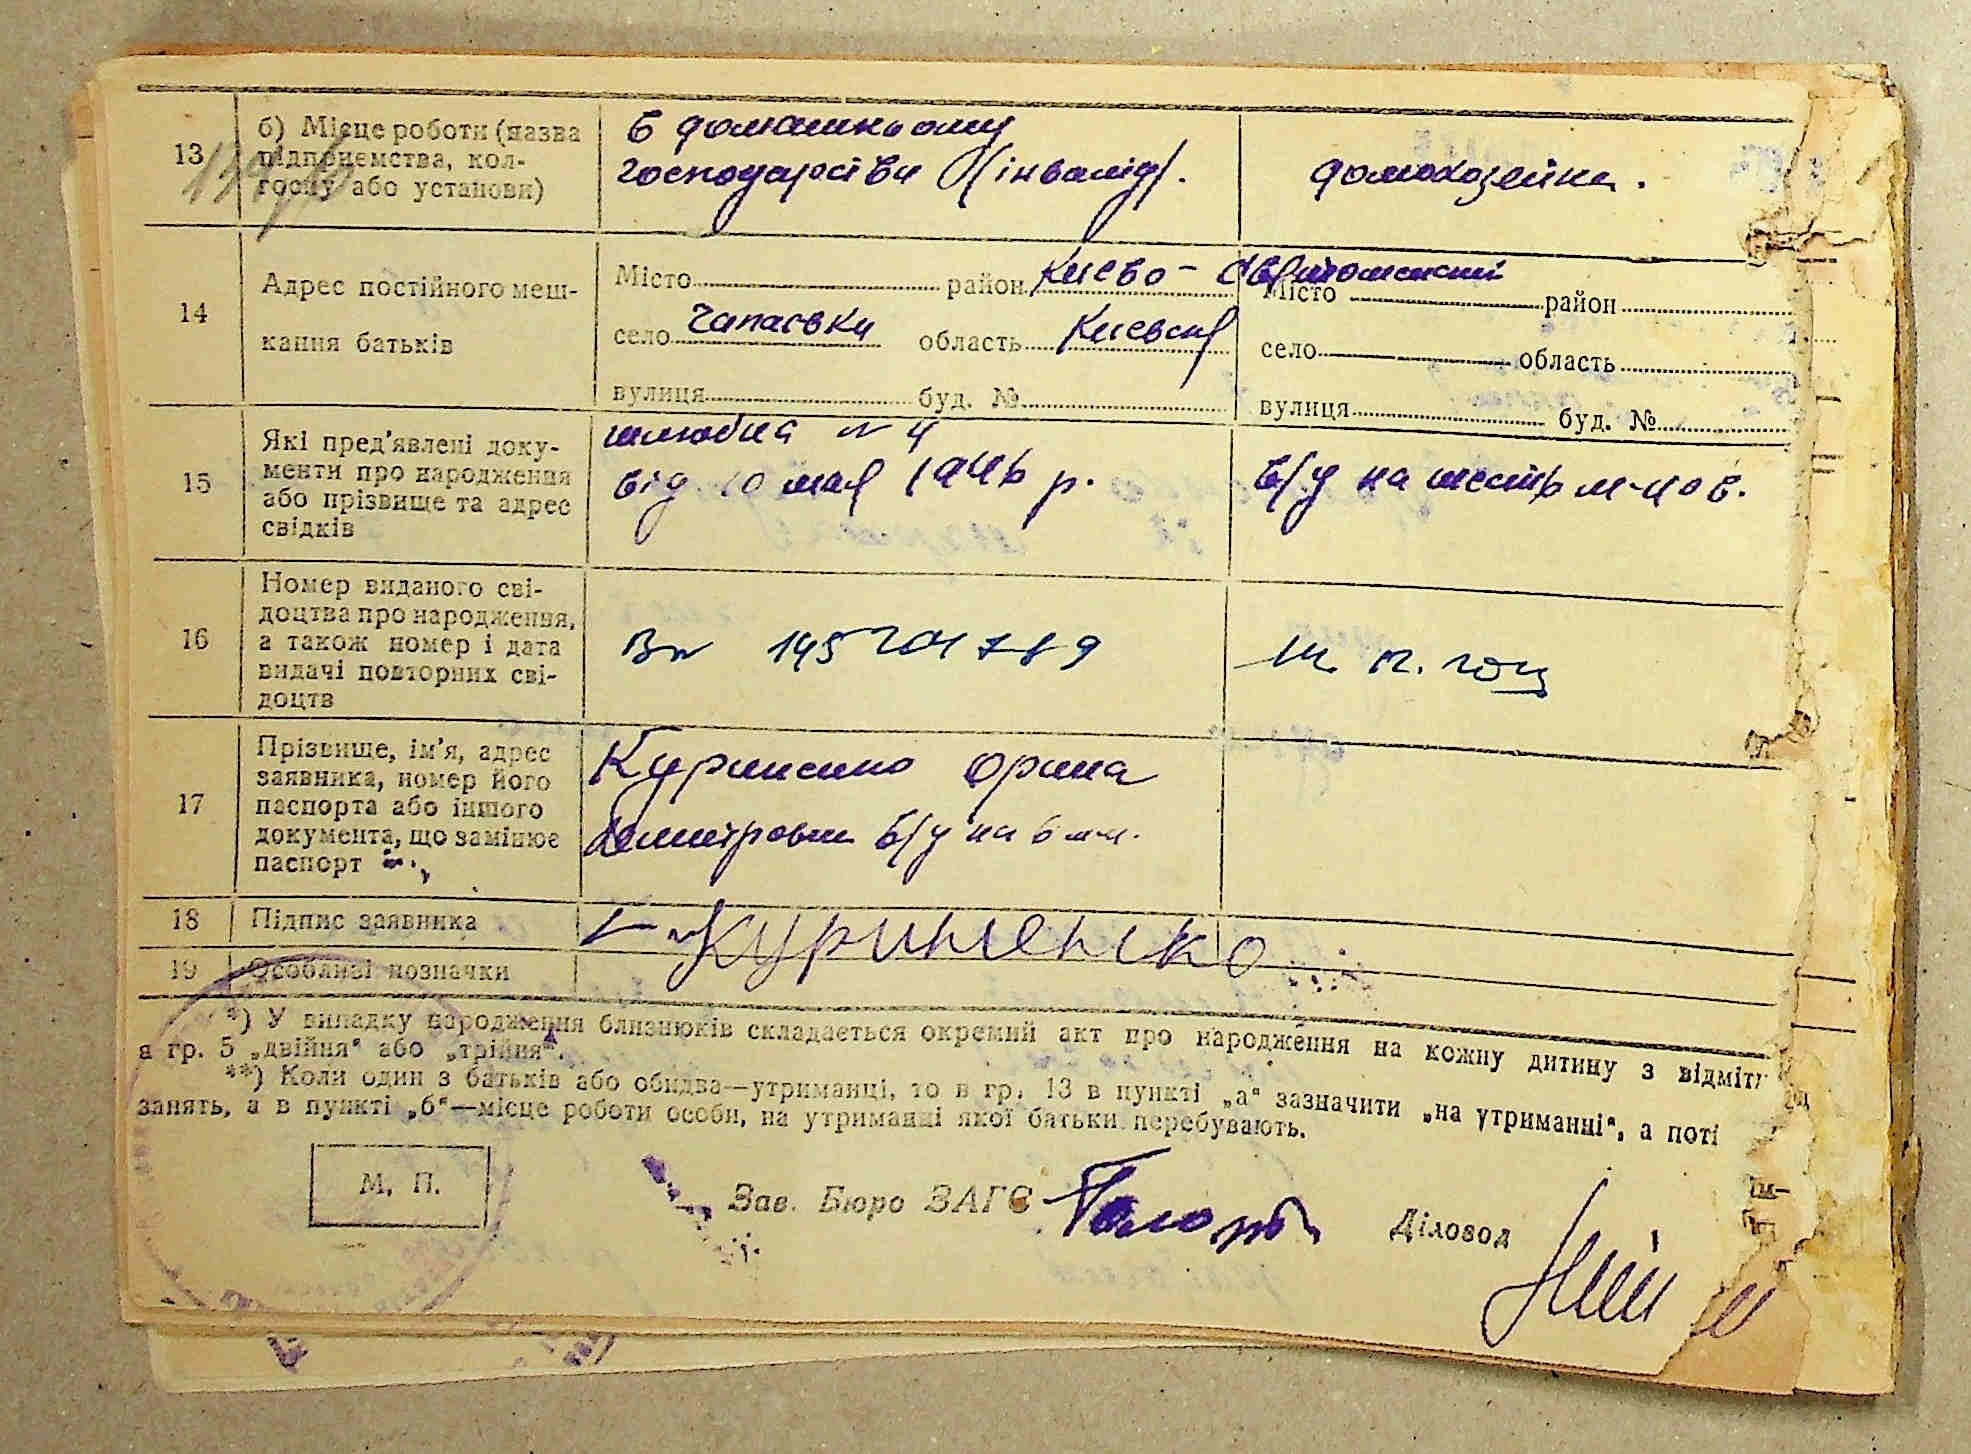 13
б) Місце роботи (назва
підприємства, кол-
госпу або установи)
в домашньому
господарстві (інвалід).
домохозяйка.
14
Адрес постійного меш-
кання батьків
Місто район Києво-Святошинский
село Чапаєвка область Києвськ
вулиця буд. №
Місто район
село область
вулиця буд. №
15
Які пред'явлені доку-
менти про народження
або прізвище та адрес
свідків
шлюбна № 4
від 10 мая 1946 р.
в/у на шесть м-цов.
16
Номер виданого сві-
доцтва про народження,
а також номер і дата
видачі повторних сві-
доцтв
17
Прізвище, ім'я, адрес
заявника, номер його
паспорта або іншого
документа, що замінює
паспорт
Куриненко Орина
Дмитровна в/у на 6 м-ц.
18
Підпис заявника
Куриненко
19
Особливі позначки
*) У випадку народження близнюків складається окремий акт про народження на кожну дитину з відміт
в гр. 5 „двійня" або „трійня".
**) Коли один з батьків або обидва—утриманці, то в гр. 13 в пункті „а" зазначити „на утриманні", а поті
занять, а в пункті „б"—місце роботи особи, на утриманні якої батьки перебувають.
М. П.
Зав. Бюро ЗАГС
Діловод